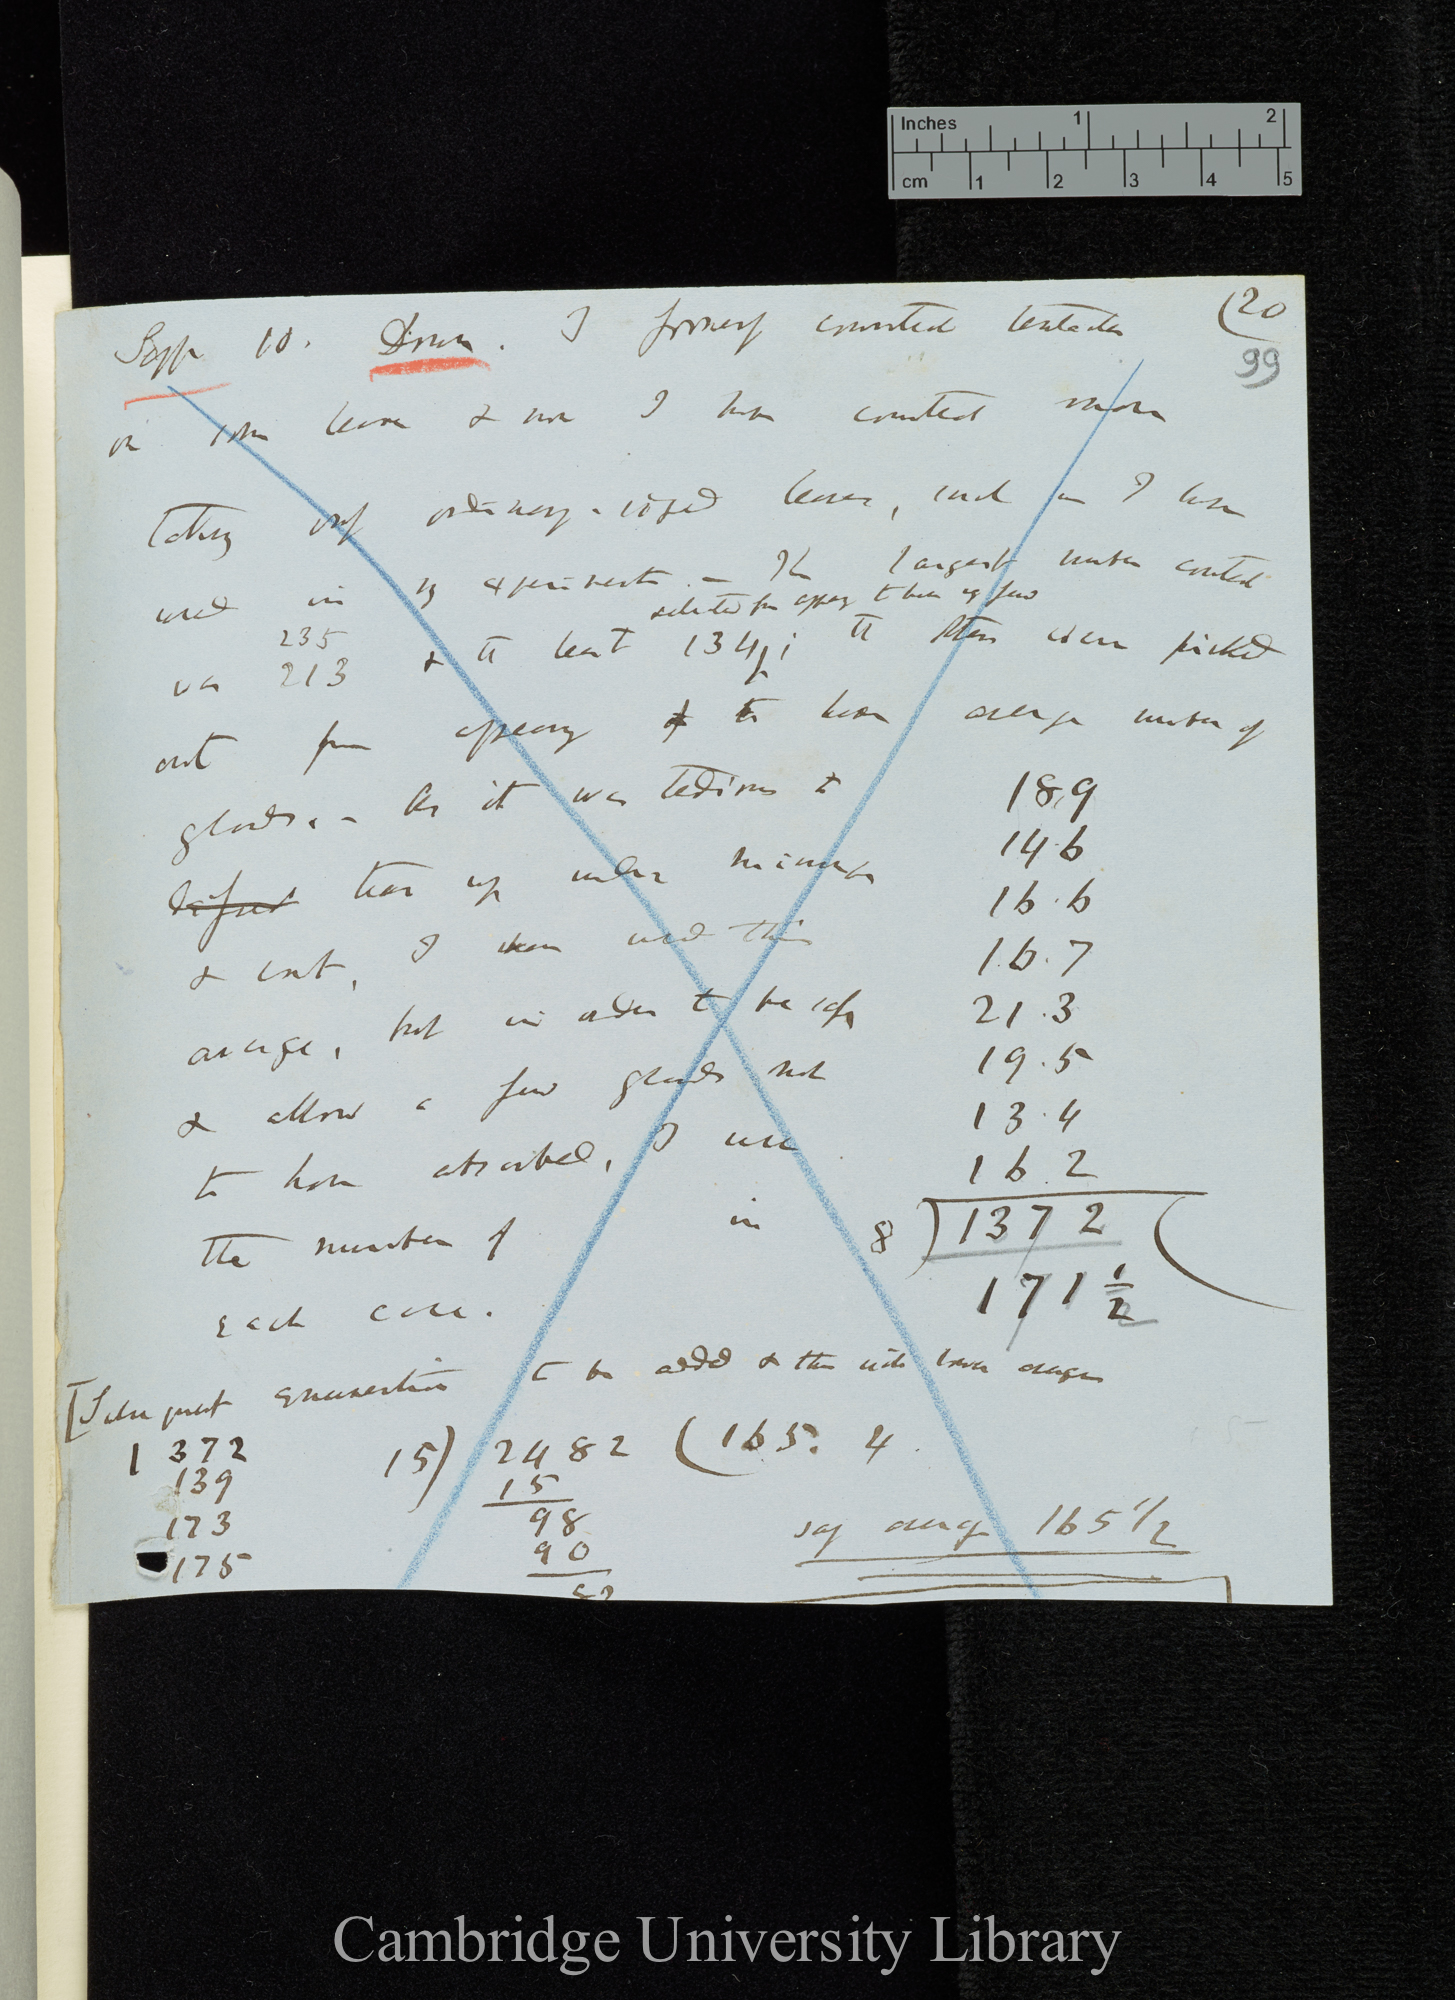 Inches 1 2
cm 1 2 3 4 5
(20
99
Sept 10. Down. I formerly counted tentacles
on some leaves & now I have counted more
taking only ordinary-sized leaves, such as I have
used in my experiments. — The largest number counted
selected from appearing to have
235
was 213 & the least 134; the were picked
out from appearing to have average number of
glands. — As it was tedious to
tear up under
& count, I have used this
average, but in order to be safe
& allow a few glands not
to have absorbed, I use
the number of in
each case.
18.9
14.6
16.6
16.7
21.3
19.5
13.4
16.2
8 ) 1372 (
171 1/2
[Subsequent enumeration to be added & then will have average
1372
139
173
175
15) 2482 (165. 4.
15
98
90
82
say average 165 1/2
Cambridge University Library